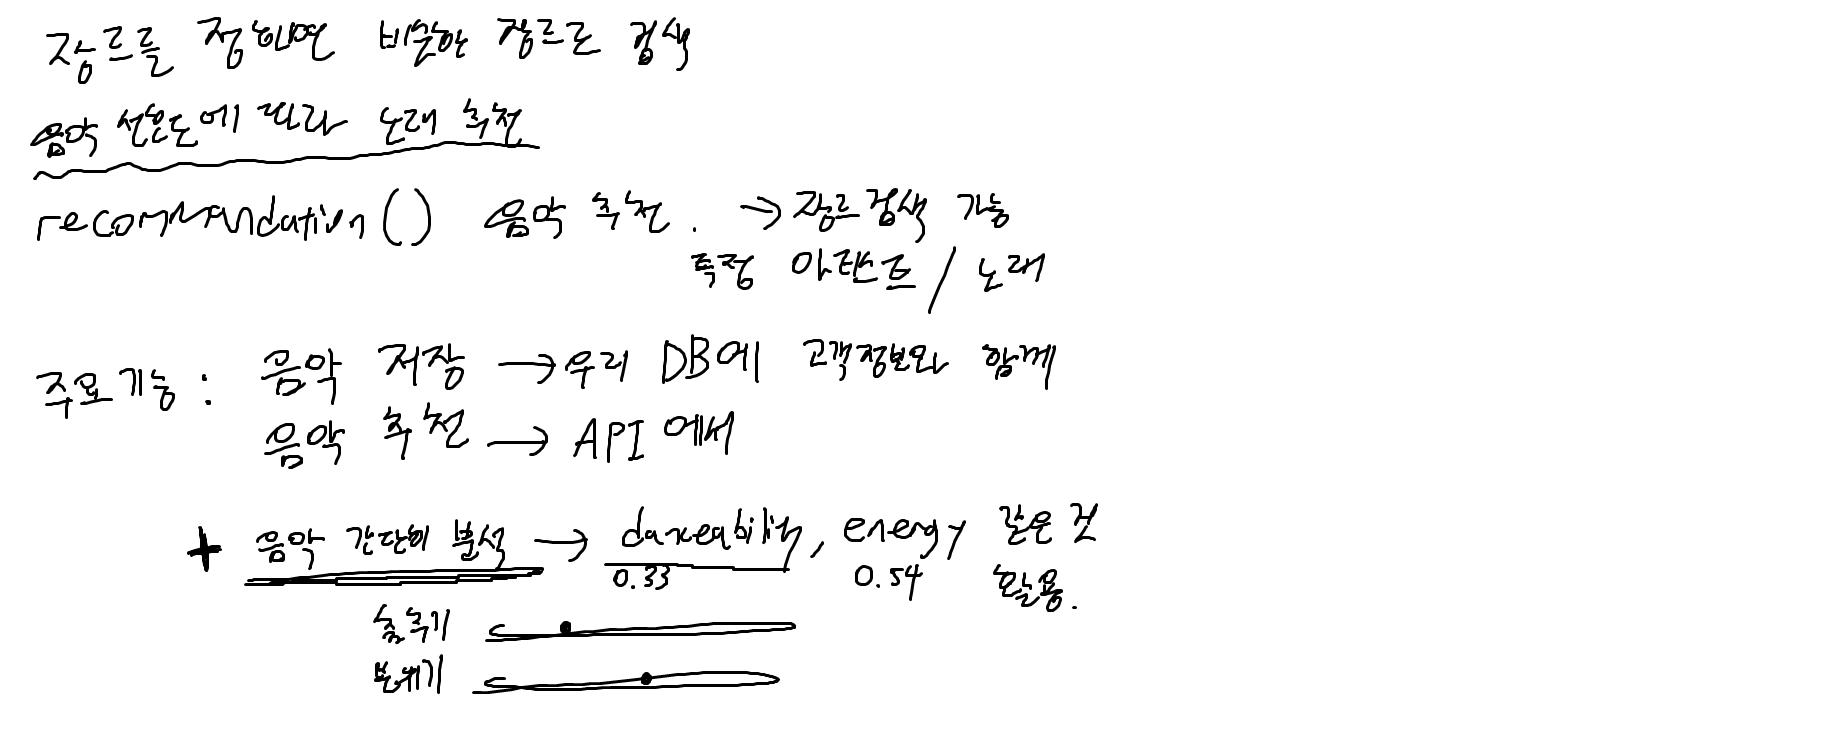 장르를 정하면 비슷한 장르로 검색
음악 선호도에 따라 노래 추천
recommandation() 음악 추천. → 장르검색 가능
특정 아티스트 / 노래
주요기능 : 음악 저장 → 우리 DB에 고객정보와 함께
음악 추천 → API에서
+ 음악 간단히 분석 → danceability, energy 같은 것
0.33 0.54 활용.
춤추기
분위기